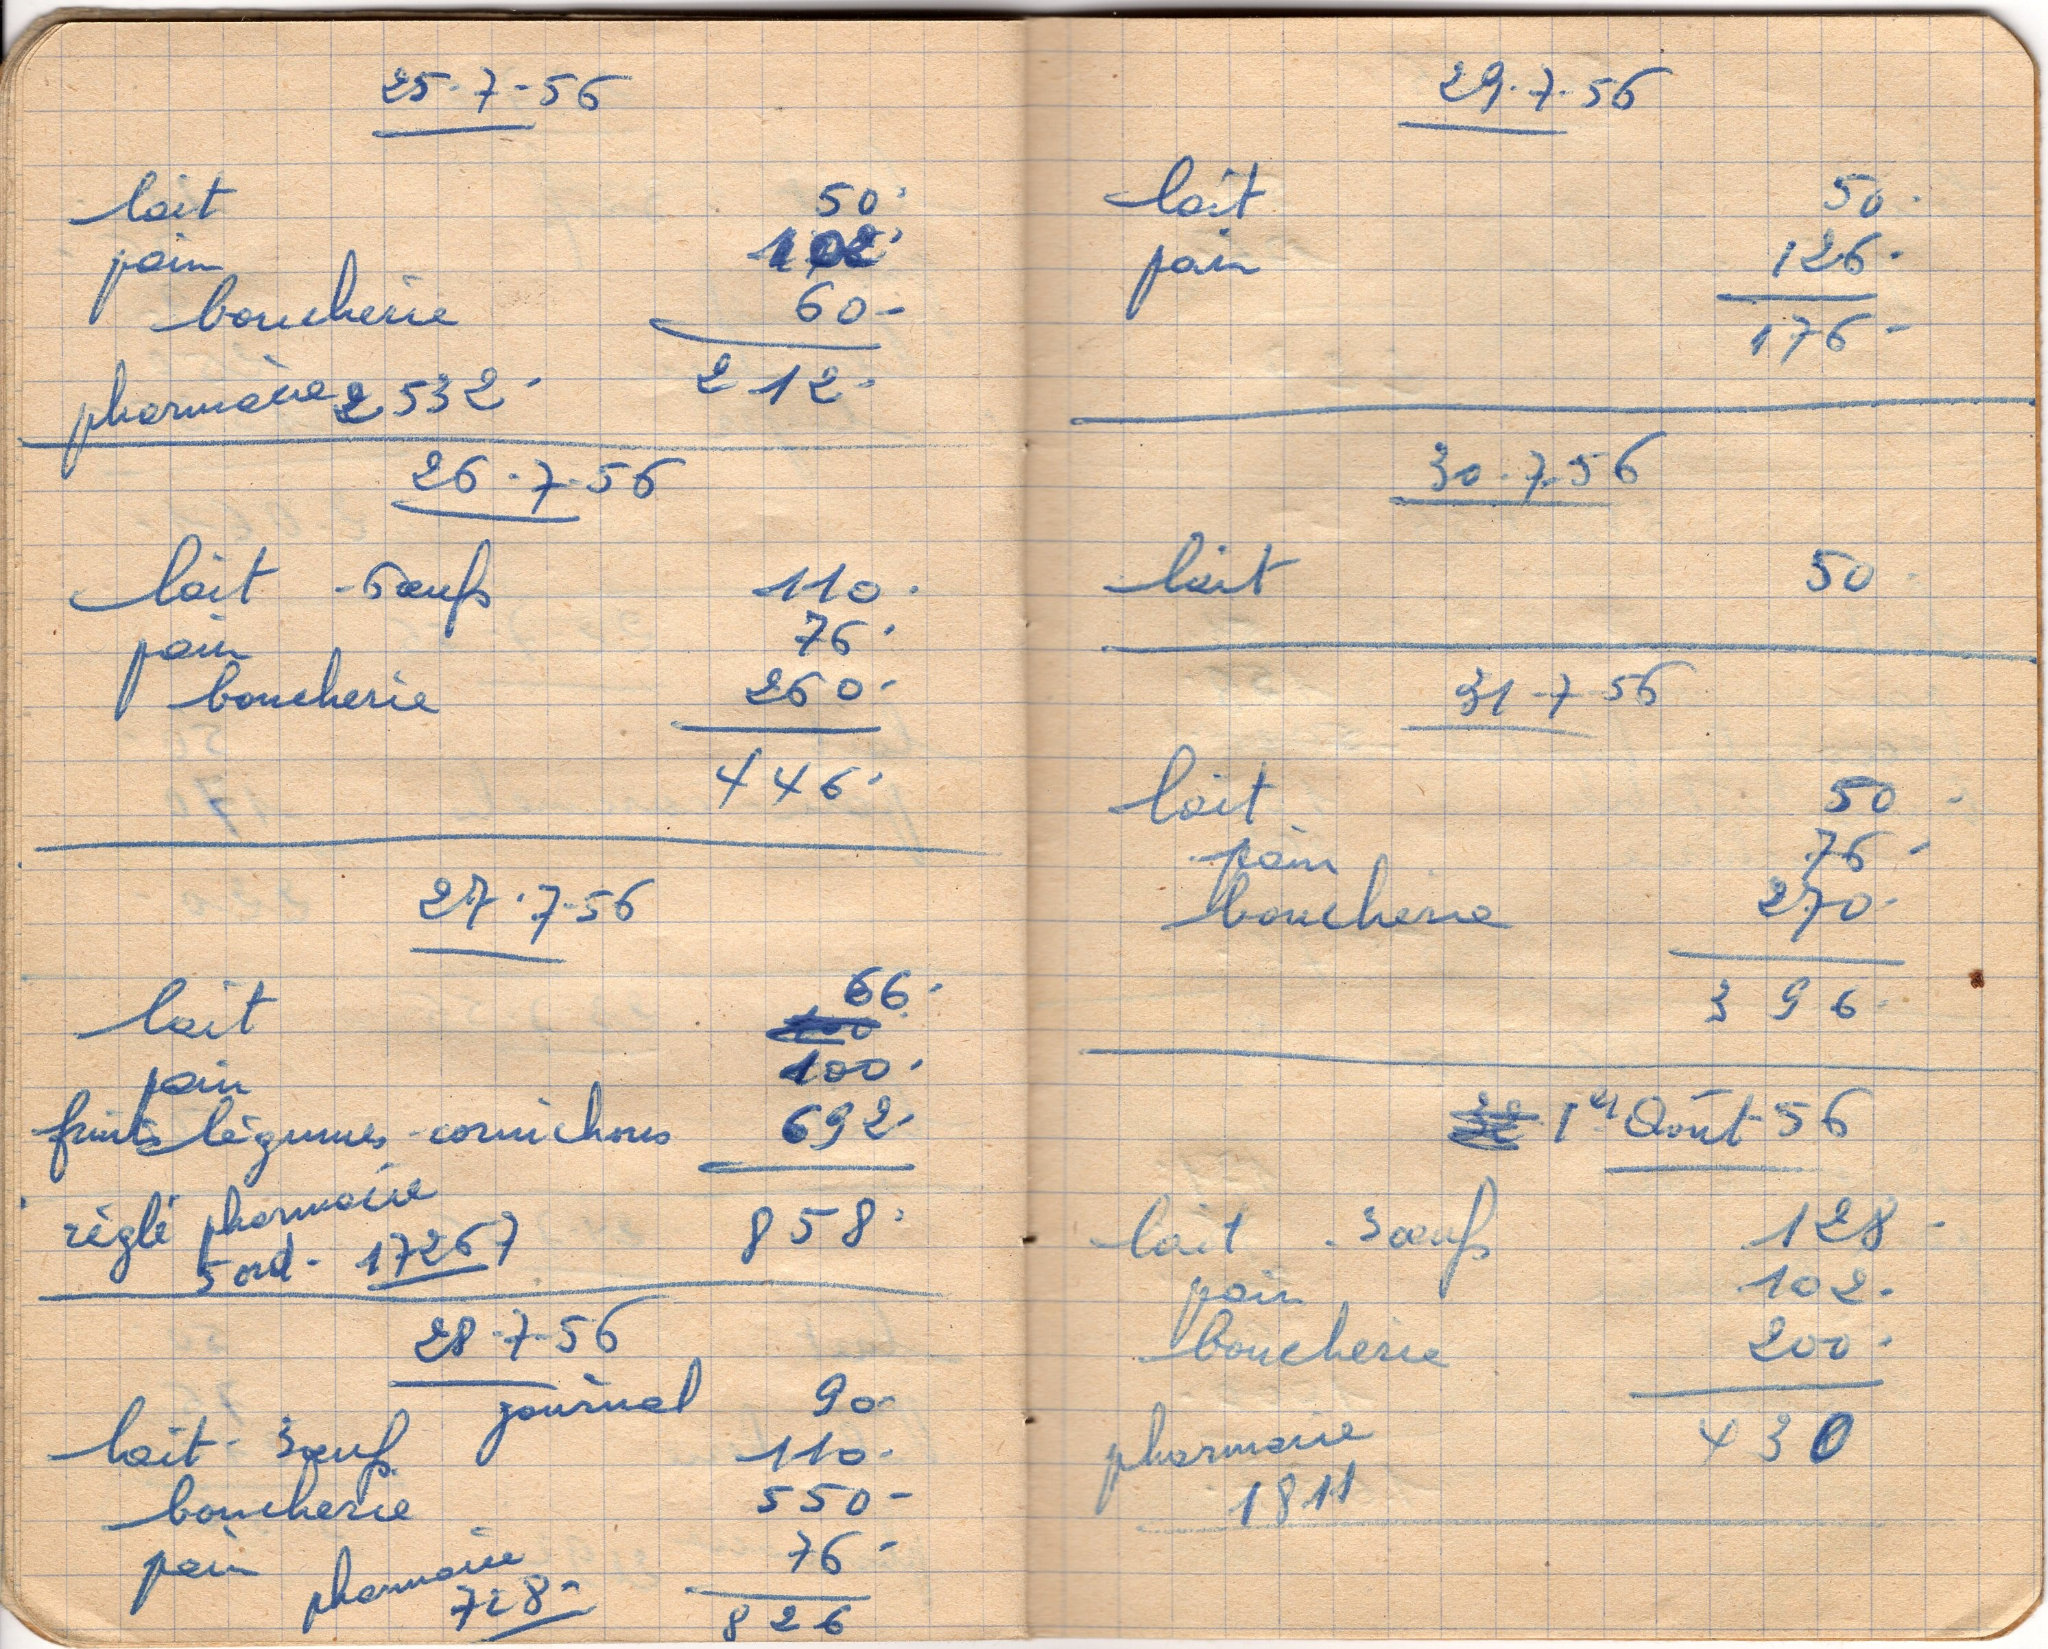 25.7-56
lait 50.
pain 102.
boucherie 60-
212.
pharmacie 2532.
26.7.56
lait - 6 œufs 110.
pain 76.
boucherie 260.
446.
27.7-56
lait 66.
pain 100.
fruits légumes - cornichons 692.
858.
réglé pharmacie
5 ord - 17267
28.7-56
journal 90-
lait - 3 œufs 110.
boucherie 550-
pain 76-
826
pharmacie
728-
29.7.56
lait 50.
pain 126.
176-
30.7.56
lait 50.
31-7-56
lait 50-
pain 76-
boucherie 270.
396.
1er Août 56
lait - 3 œufs 128-
pain 102.
boucherie 200.
430
pharmacie
1811